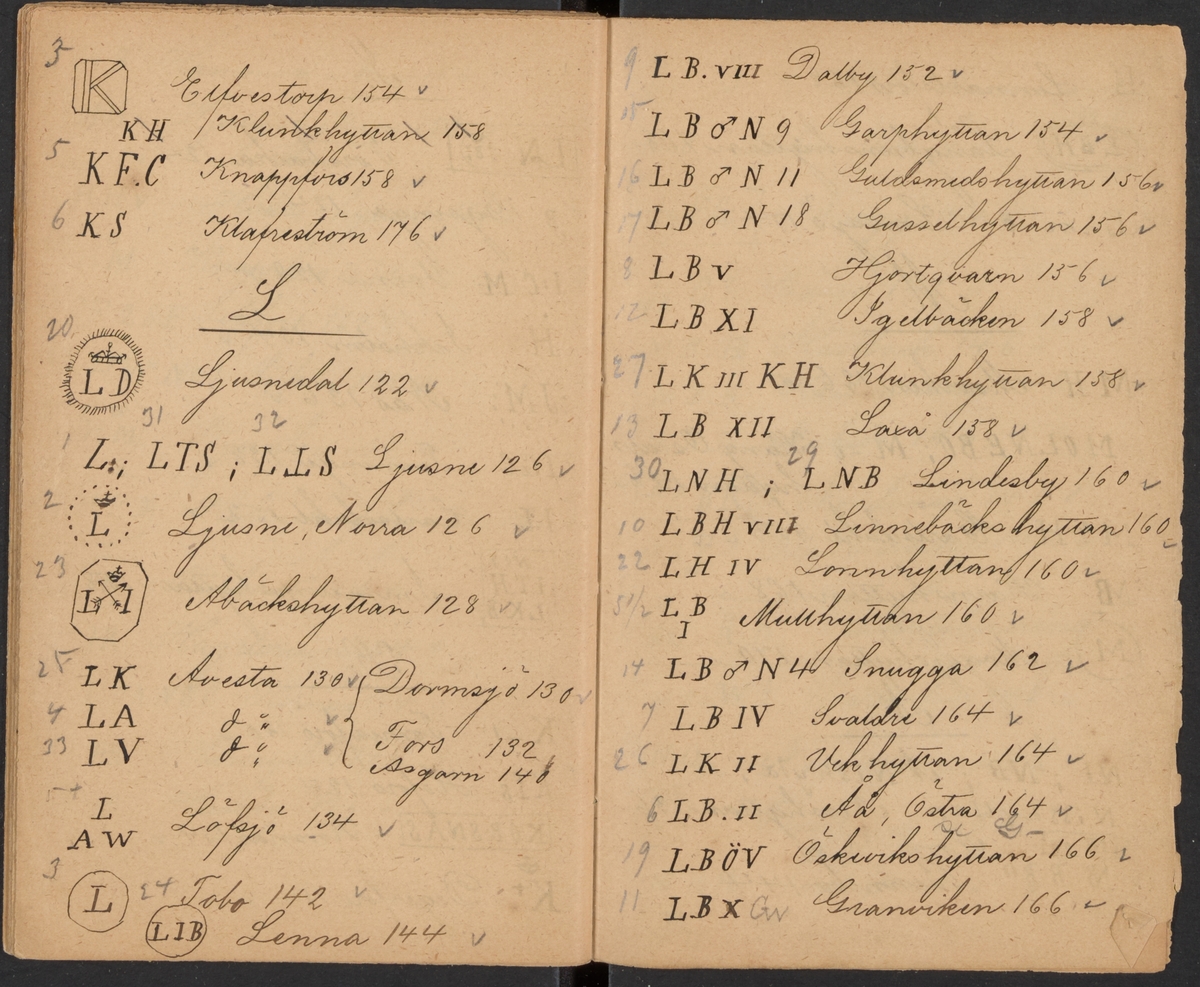 3
K Elfvestorp 154 ✓
KH Klunkhyttan 158
5 KF.C Knappfors 158 ✓
6 KS Klafreström 176 ✓
L
20
LD Ljusnedal 122 ✓
31 32
1 L. ; LTS ; LLS Ljusne 126 ✓
2 L Ljusne, Norra 126 ✓
23 LI Abäckshyttan 128 ✓
25 LK Avesta 130 ✓ Dormsjö 130 ✓
4 LA d:o ✓ Fors 132
33 LV d:o ✓ Asgarn 140
L
AW Löfsjö 134 ✓
3 L 24 Tobo 142 ✓
LIB Lenna 144 ✓
9 LB.VIII Dalby 152 ✓
15 LB♂N 9 Garphyttan 154 ✓
16 LB♂N 11 Guldsmedshyttan 156 ✓
17 LB♂N 18 Gusselhyttan 156 ✓
8 LB V Hjortqvarn 156 ✓
12 LB XI Igelbäcken 158 ✓
27 LK III KH Klunkhyttan 158 ✓
13 LB XII Laxå 158 ✓
30 LNH ; 29 LNB Lindesby 160 ✓
10 LBH VIII Linnebäckshyttan 160 ✓
22 LH IV Lonnhyttan 160 ✓
5 1/2 LB
I Mullhyttan 160 ✓
14 LB♂N 4 Snugga 162 ✓
7 LB IV Svaldre 164 ✓
26 LK II Vekhyttan 164 ✓
6 LB.II Åå, Östra 164 ✓
19 LBÖV Öskevikshyttan 166 ✓
11 LB X Gv Granviken 166 ✓